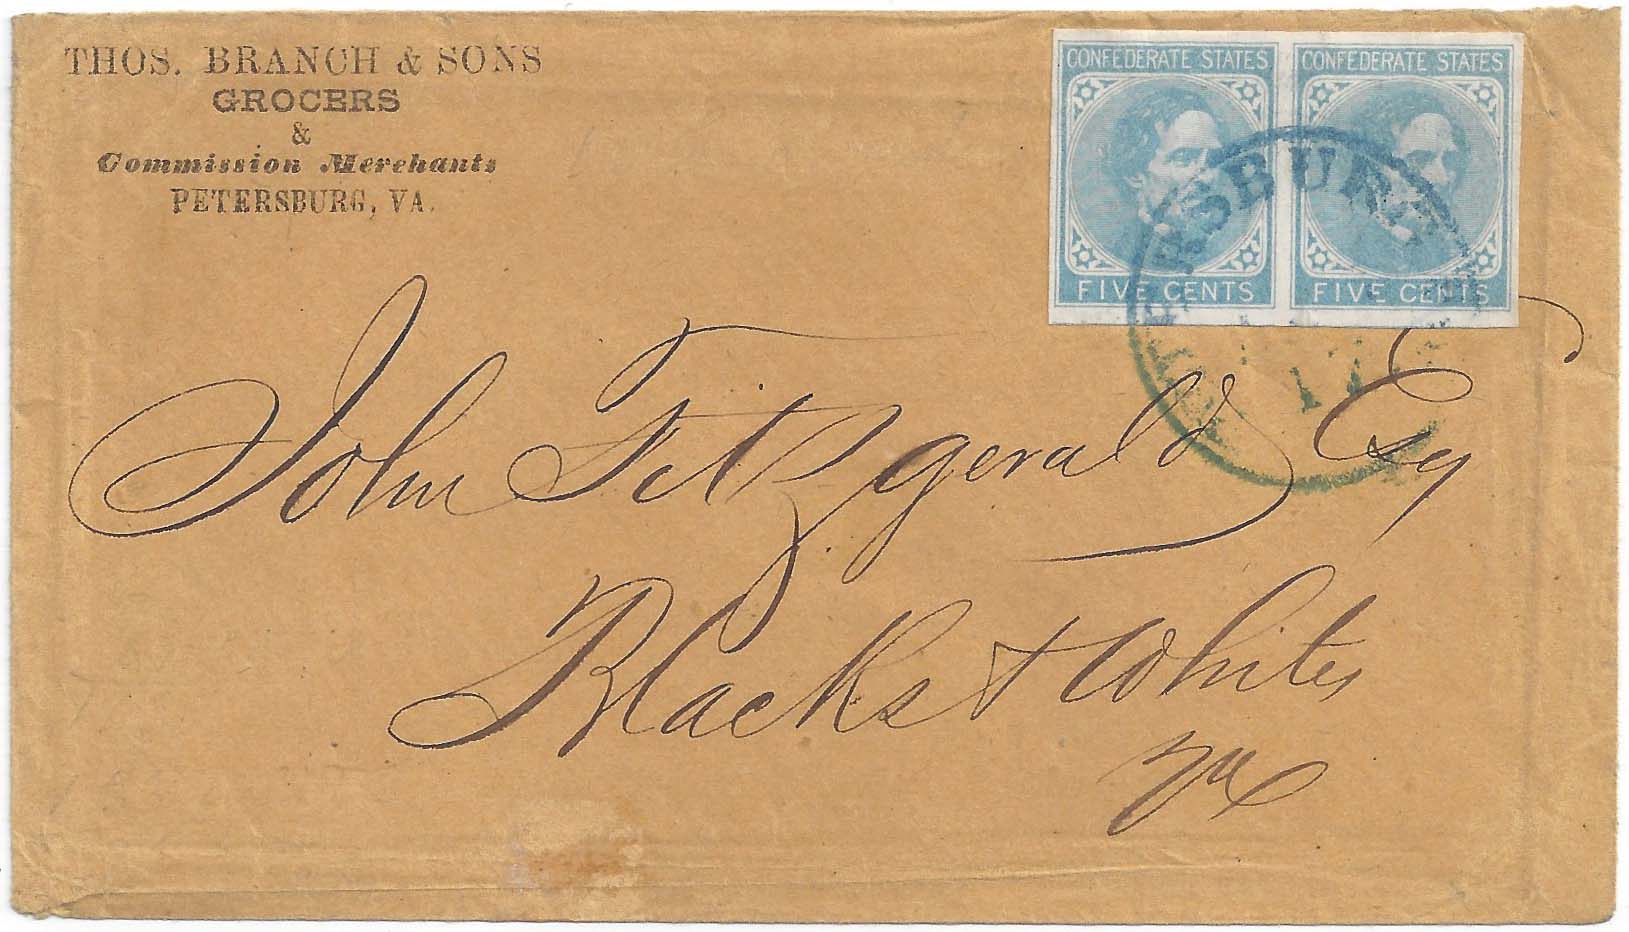 THOS. BRANCH & SONS
GROCERS
&
Commission Merchants
PETERSBURG, VA.
CONFEDERATE STATES
FIVE CENTS
CONFEDERATE STATES
FIVE CENTS
PETERSBURG
17
John Fitzgerald Esq
Blacks & Whites
Va